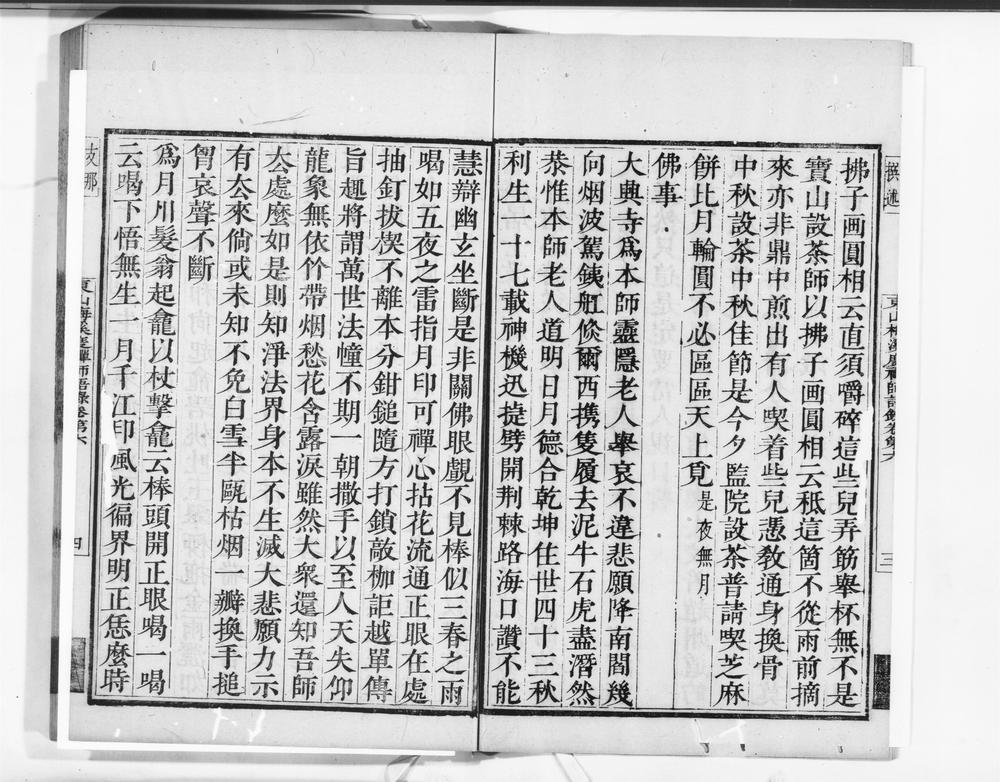 拂子画圓相云直須嚼碎這些兒弄筋舉杯無不是
寶山設茶師以拂子画圓相云秖這箇不從雨前摘
來亦非鼎中煎出有人喫着些兒慿教通身換骨
中秋設茶中秋佳節是今夕監院設茶普請喫芝麻
餅比月輪圓不必區區天上覓是夜無月
佛事
大典寺爲本師靈隱老人舉哀不違悲願降南閻幾
向烟波駕銕舡倐爾西携隻履去泥牛石虎盡潛然
恭惟本師老人道明日月德合乾坤住世四十三秋
利生一十七載神機迅㨗劈開荆棘路海口讚不能
慧辯幽玄坐斷是非關佛眼覷不見棒似三春之雨
喝如五夜之雷指月印可禪心拈花流通正眼在處
抽釘拔楔不離本分鉗鎚隨方打鎖敲枷詎越單傳
旨趣將謂萬世法幢不期一朝撒手以至人天失仰
龍象無依竹帶烟愁花含露淚雖然大衆還知吾師
去處麽如是則知淨法界身本不生滅大悲願力示
有去來倘或未知不免白雪半甌枯烟一瓣換手搥
胷哀聲不斷
爲月川髮翁起龕以杖擊龕云棒頭開正眼喝一喝
云喝下悟無生一月千江印風光徧界明正恁麽時
支那
四
三